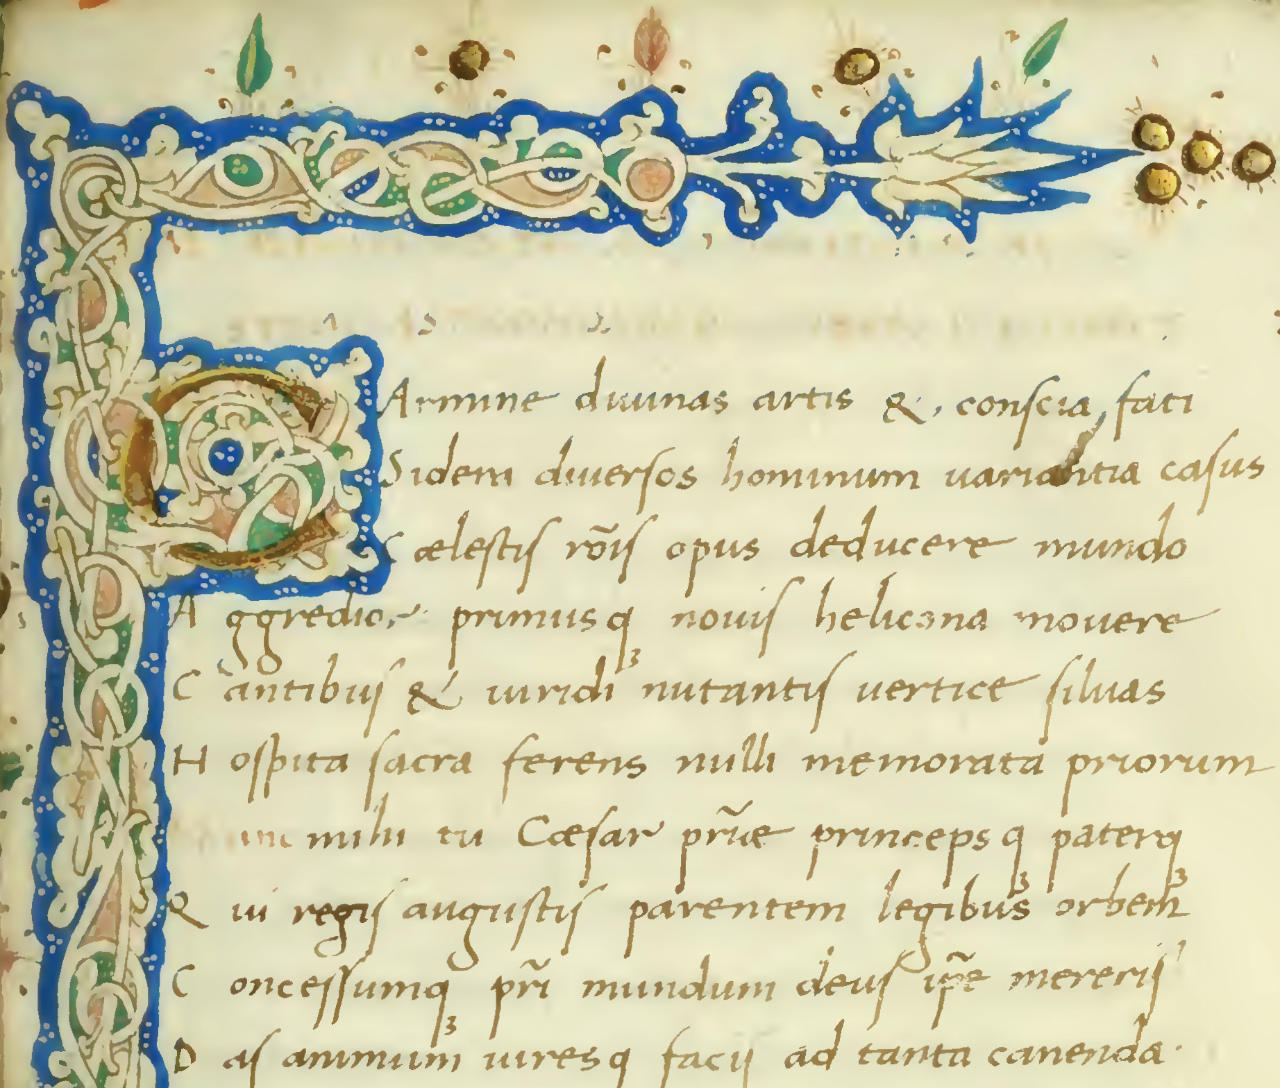 CArmine diuinas artis & conscia fati
Sidera diuersos hominum uariantia casus
Cælestis rōis opus deducere mundo
Aggredior primusq nouis helicona mouere
Cantibus & uiridi nutantis uertice siluas
Hospita sacra ferens nulli memorata priorum
unc mihi tu Cæsar pr̄iæ princepsq paterq
Qui regis augustis parentem legibus orbem
Concessumq pr̄i mundum deus ip̄e mereris
Das animum uiresq facis ad tanta canenda.